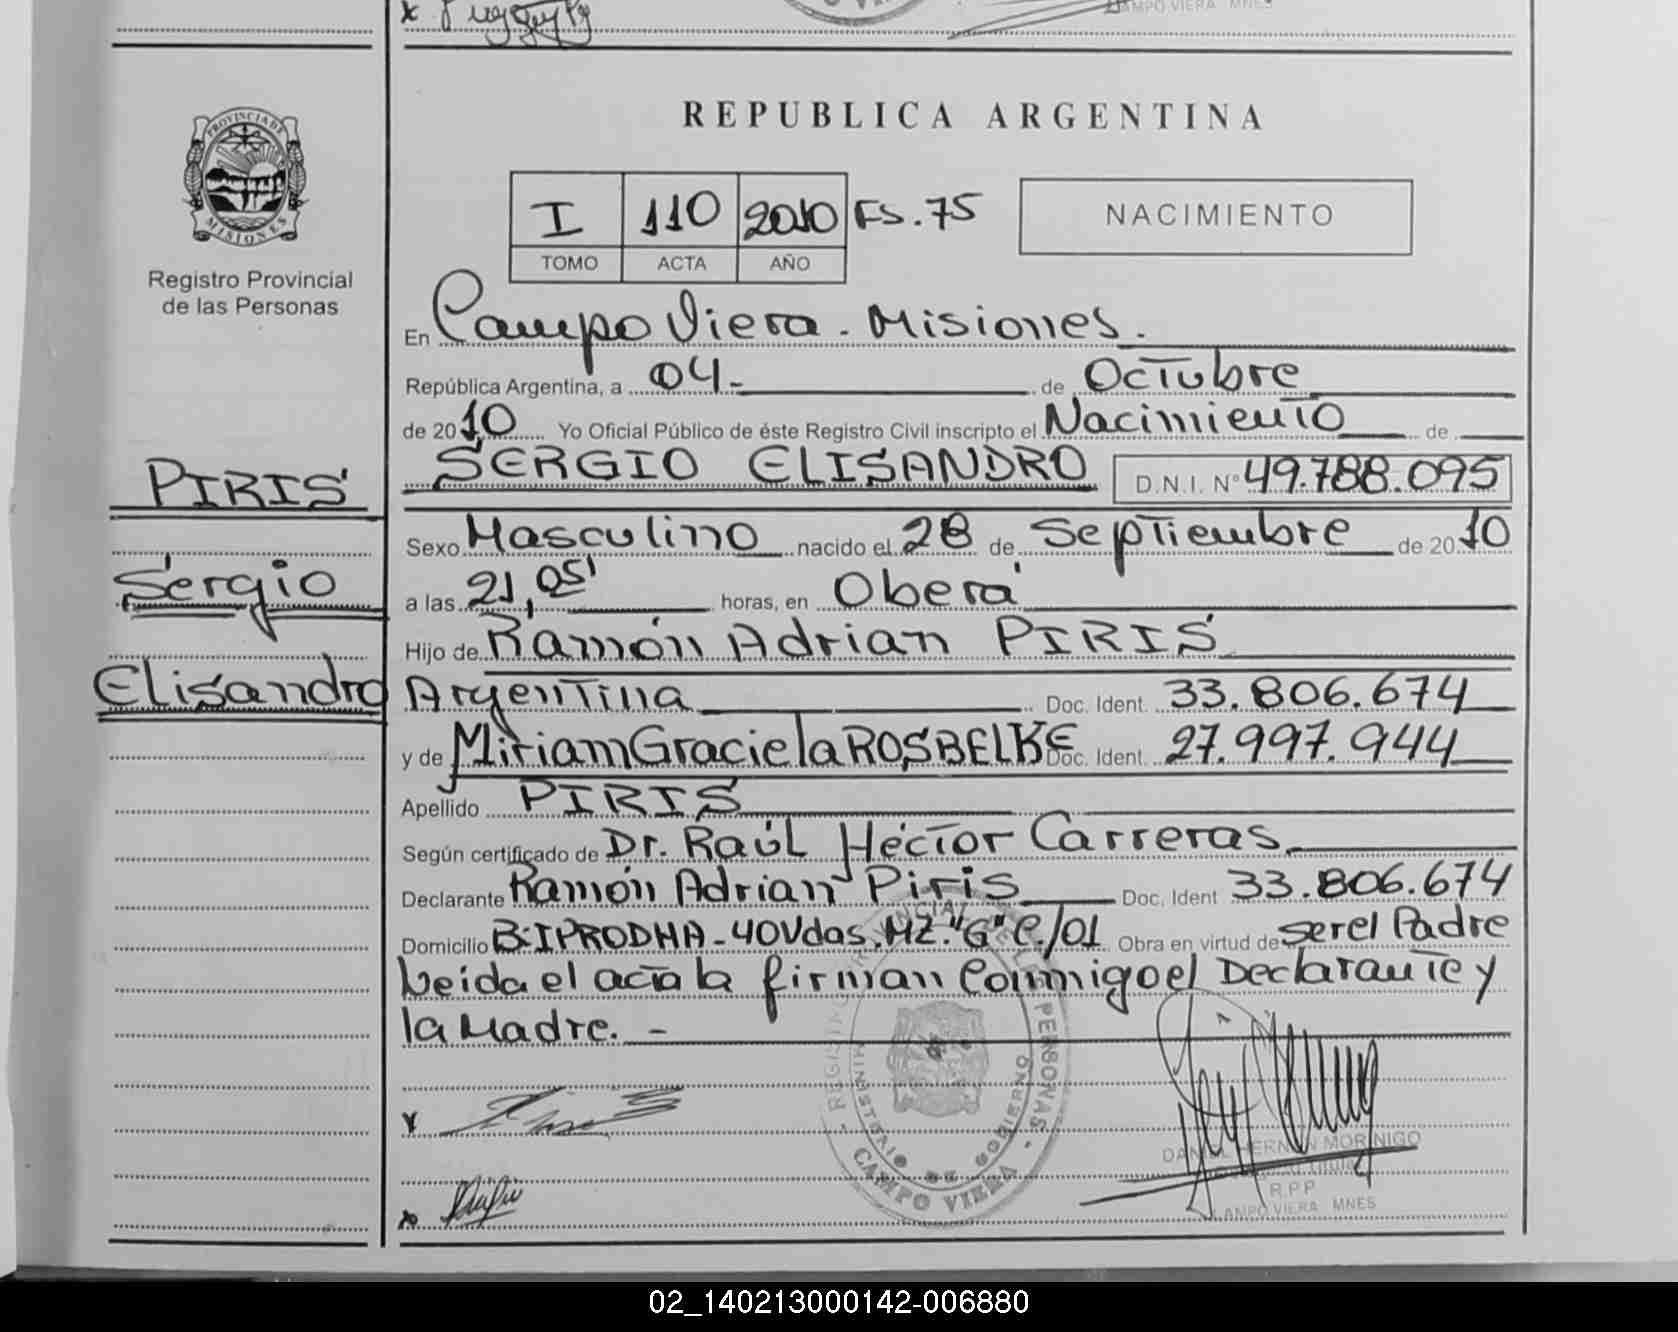 REPUBLICA ARGENTINA
PROVINCIA DE MISIONES
Registro Provincial
de las Personas
I 110 2010 FS. 75
TOMO ACTA AÑO
NACIMIENTO
En Campo Viera - Misiones.
República Argentina, a 04 - de Octubre
de 2010 Yo Oficial Público de éste Registro Civil inscripto el Nacimiento de
SERGIO ELISANDRO D.N.I. N° 49.788.095
PIRIS
Sergio
Elisandro
Sexo Masculino nacido el 28 de Septiembre de 2010
a las 21,05' horas, en Oberá
Hijo de Ramón Adrian PIRIS
Argentina Doc. Ident. 33.806.674
y de Miriam Graciela ROSBELKE Doc. Ident. 27.997.944
Apellido PIRIS
Según certificado de Dr. Raúl Héctor Carreras
Declarante Ramón Adrian Piris Doc. Ident 33.806.674
Domicilio B: IPRODHA - 40Vdas. MZ. "G" C/01 Obra en virtud de ser el Padre
Leida el acta la firman Conmigo el Declarante y
la Madre. -
REGISTRO PROVINCIAL DE LAS PERSONAS
MINISTERIO DE GOBIERNO
- CAMPO VIERA -
DANIEL HERNAN MORINIGO
R.P.P
CAMPO VIERA MNES
02_140213000142-006880